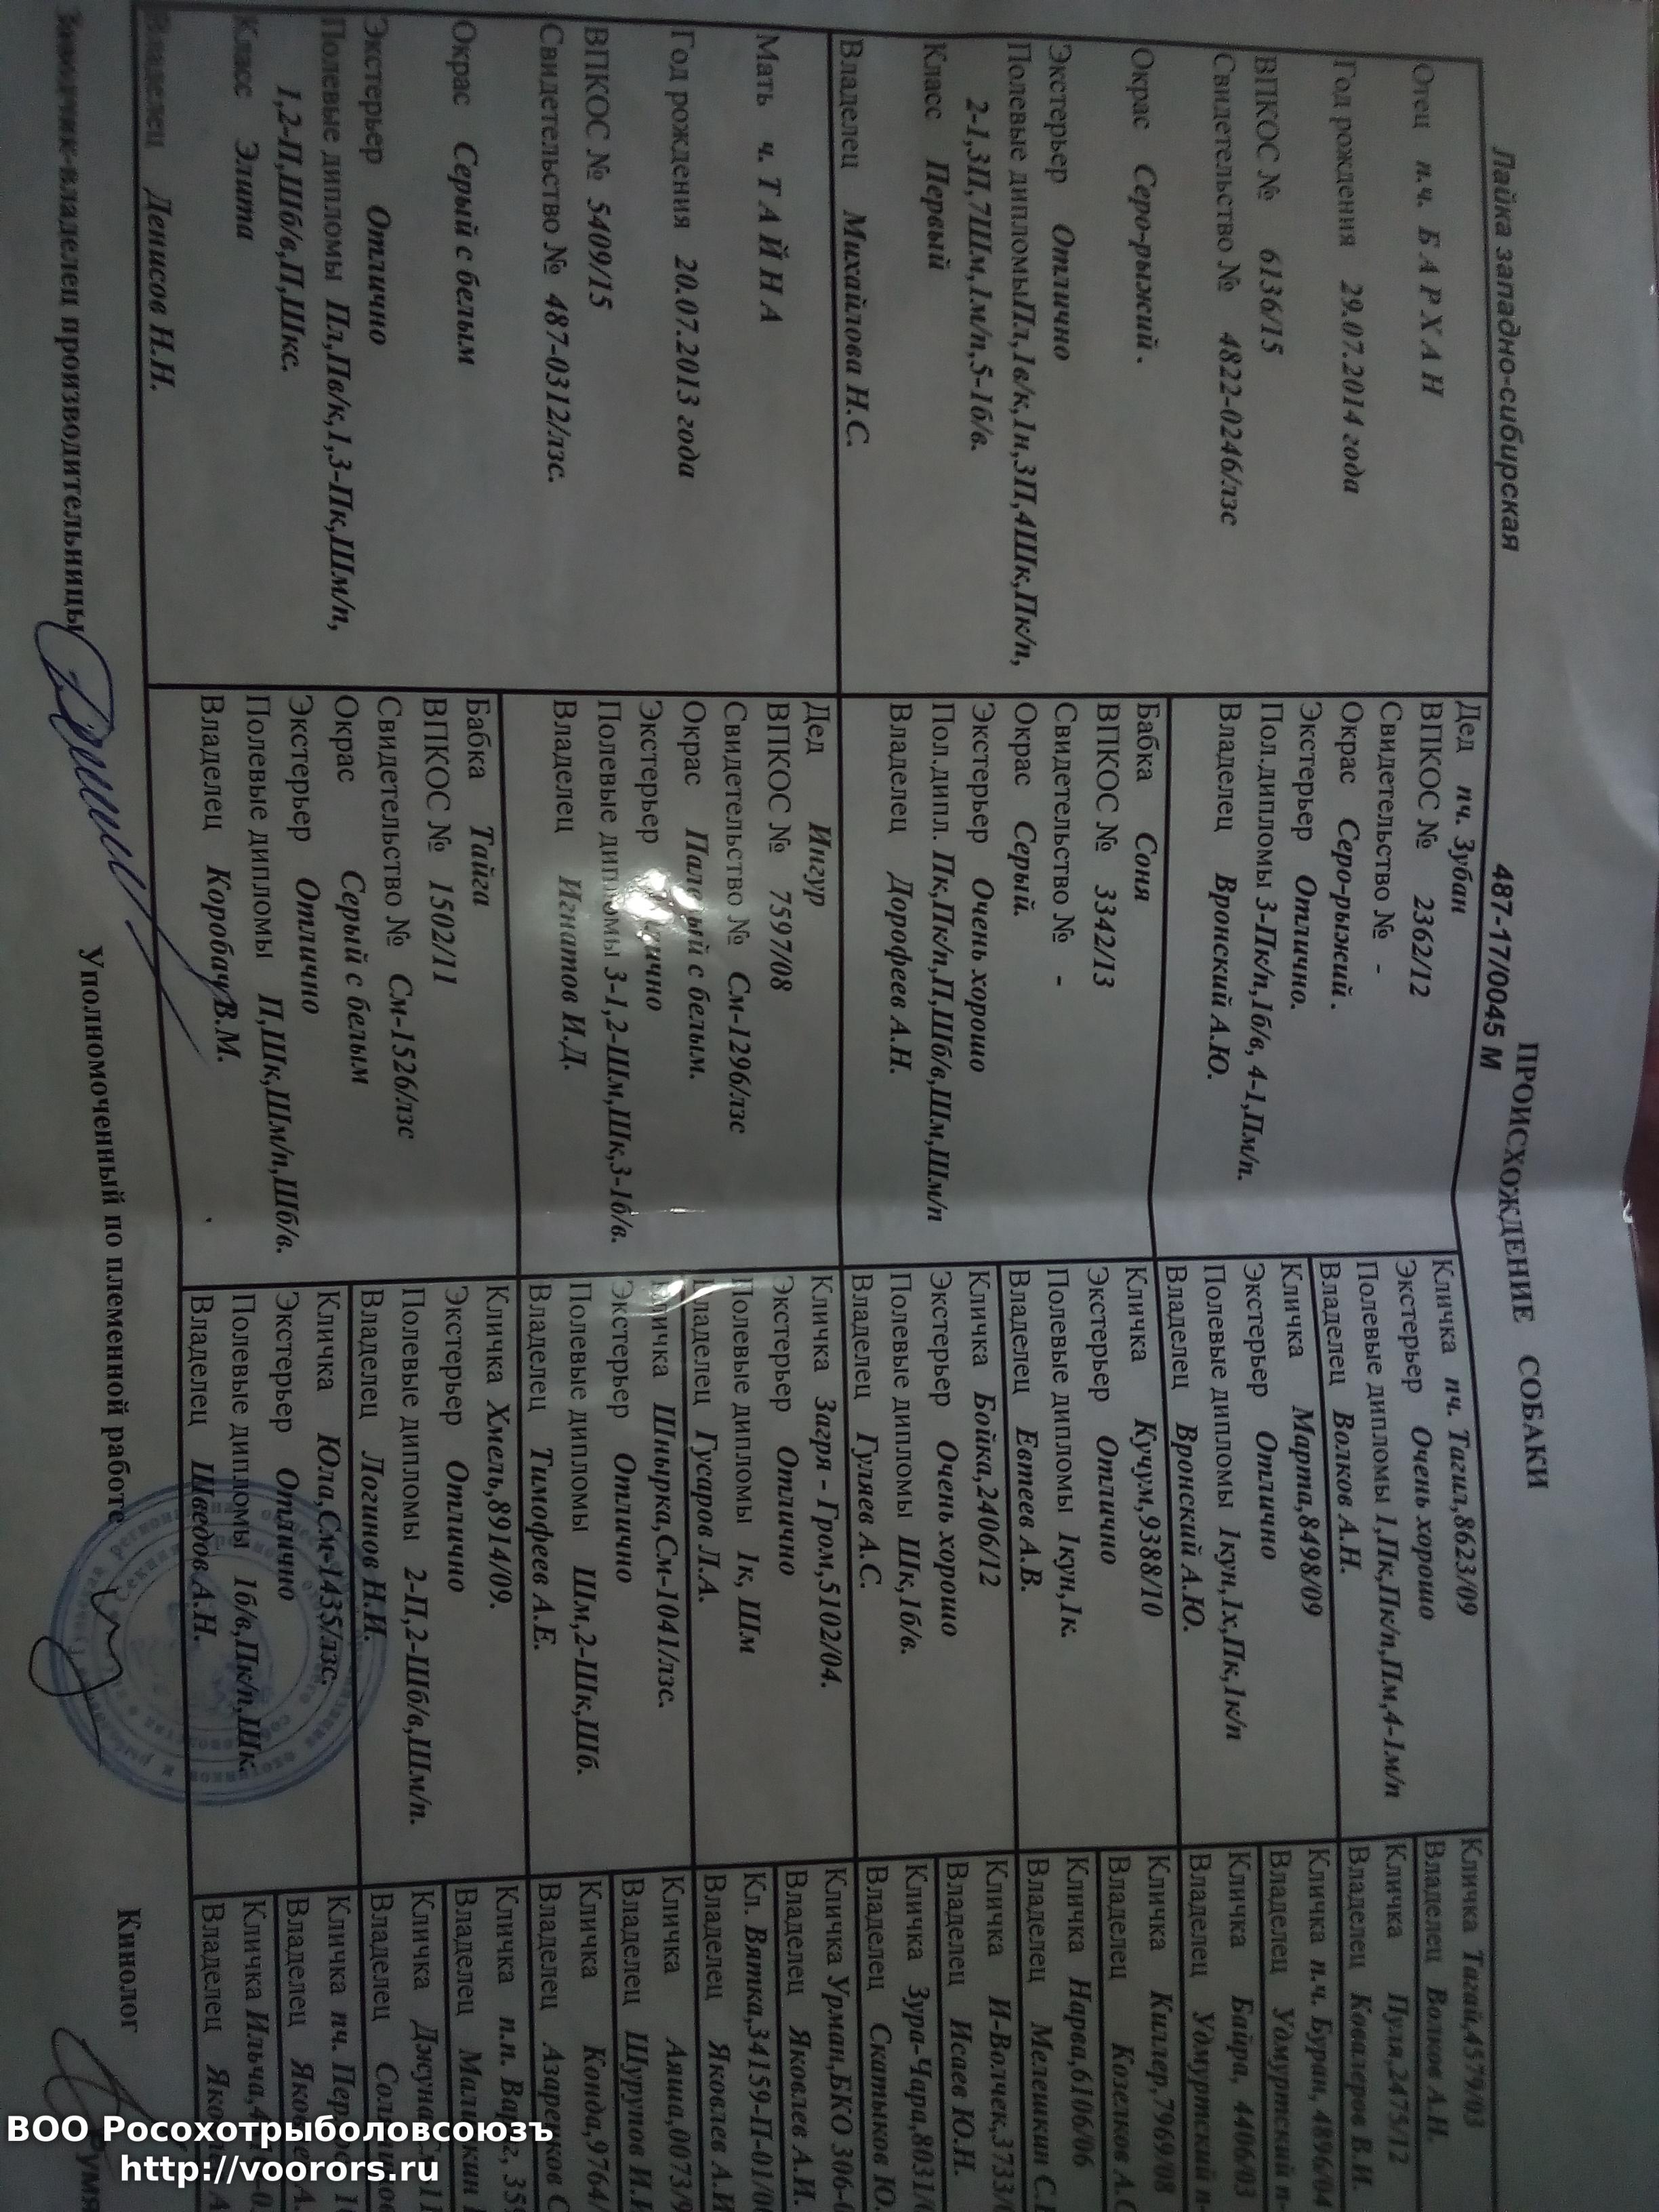 ПРОИСХОЖДЕНИЕ СОБАКИ
Лайка западно-сибирская
487-17/0045 М
Отец п.ч. Б А Р Х А Н
Год рождения 29.07.2014 года
ВПКОС № 6136/15
Свидетельство № 4822-0246/лзс
Окрас Серо-рыжий.
Экстерьер Отлично
Полевые дипломыПл,1в/к,1н,3П,4Шк,Пк/п,
2-1,3П,7Шм,1м/п,5-1б/в.
Класс Первый
Владелец Михайлова Н.С.
Мать ч. Т А Й Н А
Год рождения 20.07.2013 года
ВПКОС № 5409/15
Свидетельство № 487-0312/лзс.
Окрас Серый с белым
Экстерьер Отлично
Полевые дипломы Пл,Пв/к,1,3-Пк,Шм/п,
1,2-П,Шб/в,П,Шкс.
Класс Элита
Владелец Денисов Н.Н.
Дед пч. Зубан
ВПКОС № 2362/12
Свидетельство № -
Окрас Серо-рыжий.
Экстерьер Отлично.
Пол.дипломы 3-Пк/п,1б/в, 4-1,Пм/п.
Владелец Вронский А.Ю.
Бабка Соня
ВПКОС № 3342/13
Свидетельство № -
Окрас Серый.
Экстерьер Очень хорошо
Пол.дипл. Пк,Пк/п,П,Шб/в,Шм,Шм/п
Владелец Дорофеев А.Н.
Дед Ингур
ВПКОС № 7597/08
Свидетельство № См-1296/лзс
Окрас Палевый с белым.
Экстерьер Отлично
Полевые дипломы 3-1,2-Шм,Шк,3-1б/в.
Владелец Игнатов И.Д.
Бабка Тайга
ВПКОС № 1502/11
Свидетельство № См-1526/лзс
Окрас Серый с белым
Экстерьер Отлично
Полевые дипломы П,Шк,Шм/п,Шб/в.
Владелец Коробач В.М.
Кличка пч. Тагил,8623/09
Экстерьер Очень хорошо
Полевые дипломы 1,Пк,Пк/п,Пм,4-1м/п
Владелец Волков А.Н.
Кличка Марта,8498/09
Экстерьер Отлично
Полевые дипломы 1кун,1х,Пк,1к/п
Владелец Вронский А.Ю.
Кличка Кучум,9388/10
Экстерьер Отлично
Полевые дипломы 1кун,1к.
Владелец Евтеев А.В.
Кличка Бойка,2406/12
Экстерьер Очень хорошо
Полевые дипломы Шк,1б/в.
Владелец Гуляев А.С.
Кличка Загря - Гром,5102/04.
Экстерьер Отлично
Полевые дипломы 1к, Шм
Владелец Гусаров Л.А.
Кличка Шнырка,См-1041/лзс.
Экстерьер Отлично
Полевые дипломы Шм,2-Шк,Шб.
Владелец Тимофеев А.Е.
Кличка Хмель,8914/09.
Экстерьер Отлично
Полевые дипломы 2-П,2-Шб/в,Шм/п.
Владелец Логинов Н.И.
Кличка Юла,См-1435/лзс.
Экстерьер Отлично
Полевые дипломы 1б/в,Пк/п,Шк
Владелец Шведов А.Н.
Кличка Тагай,4579/03
Владелец Волков А.Н.
Кличка Пуля,2475/12
Владелец Ковалеров В.И.
Кличка п.ч. Буран, 4896/04
Владелец Удмуртский п-
Кличка Байра, 4406/03
Владелец Удмуртский п-
Кличка Киллер,7969/08
Владелец Козелков А.С
Кличка Нарва,6106/06
Владелец Мелешкин С.
Кличка И-Волчек,3733/
Владелец Исаев Ю.Н.
Кличка Зура-Чара,8031/
Владелец Скатыков Ю.
Кличка Урман,БКО 306-
Владелец Яковлев А.И.
Кл. Вятка,34159-П-01/0
Владелец Яковлев А.И
Кличка Аяна,0073/9
Владелец Шурупов И.
Кличка Конда,9764/
Владелец Азаренков С
Кличка п.п. 35
Владелец
Кличка Джуна
Владелец
Кличка пч.
Владелец
Кличка Ильча,4
Владелец
Заводчик-владелец производительницы
Уполномоченный по племенной работе
Кинолог
ВОО Росохотрыболовсоюзъ
http://voorors.ru